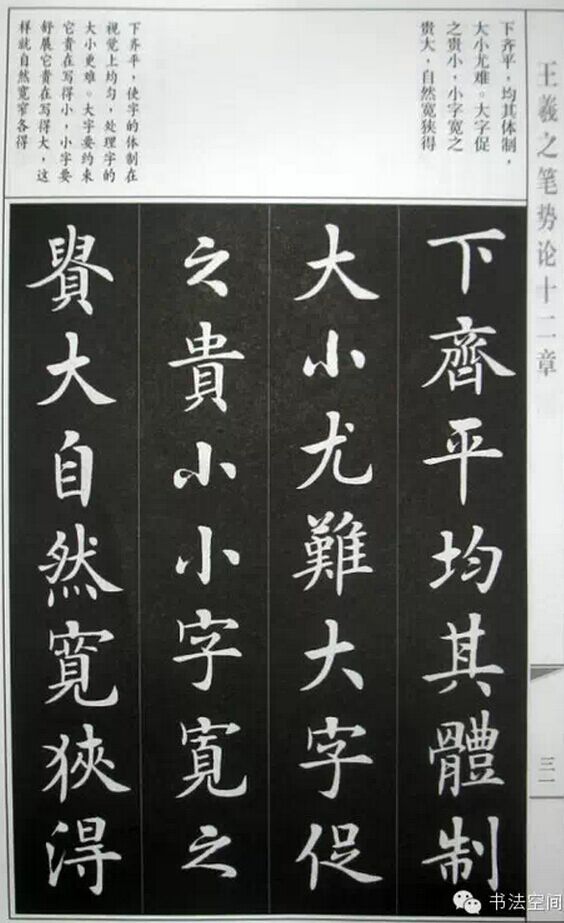 王羲之笔势论十二章
三一
下齐平,均其体制,
大小尤难。大字促
之贵小,小字宽之
贵大,自然宽狭得
下齐平,使字的体制在
视觉上均匀,处理字的
大小更难。大字要约束
它贵在写得小,小字要
舒展它贵在写得大,这
样就自然宽窄各得
下齊平均其體制
大小尤難大字促
之貴小小字寬之
貴大自然寬狹得
书法空间